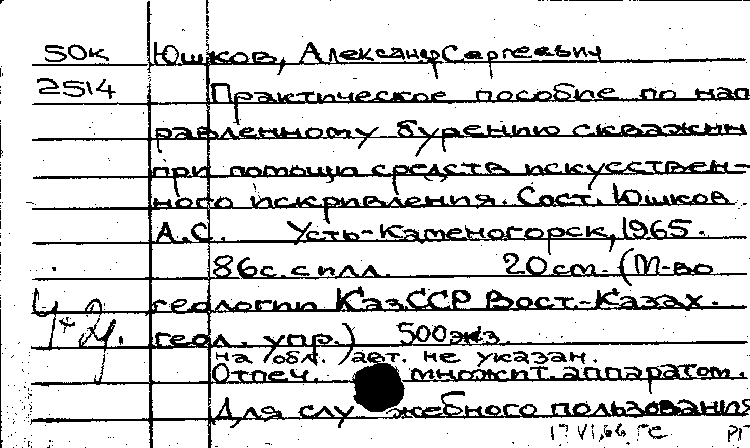 50к Юшков, Александр Сергеевич
2514 Практическое пособие по нап
равленному бурению скважин
при помощи средств искусствен-
ного искривления. Сост. Юшков
А.С. Усть-Каменогорск, 1965.
86с. с илл. 20см. (М-во
геологии КазССР Вост.-Казах.
геол. упр.) 500экз.
на обл. авт. не указан.
Отпеч. множит. аппаратом.
Для служебного пользования
17 VI 66 ГС РГ